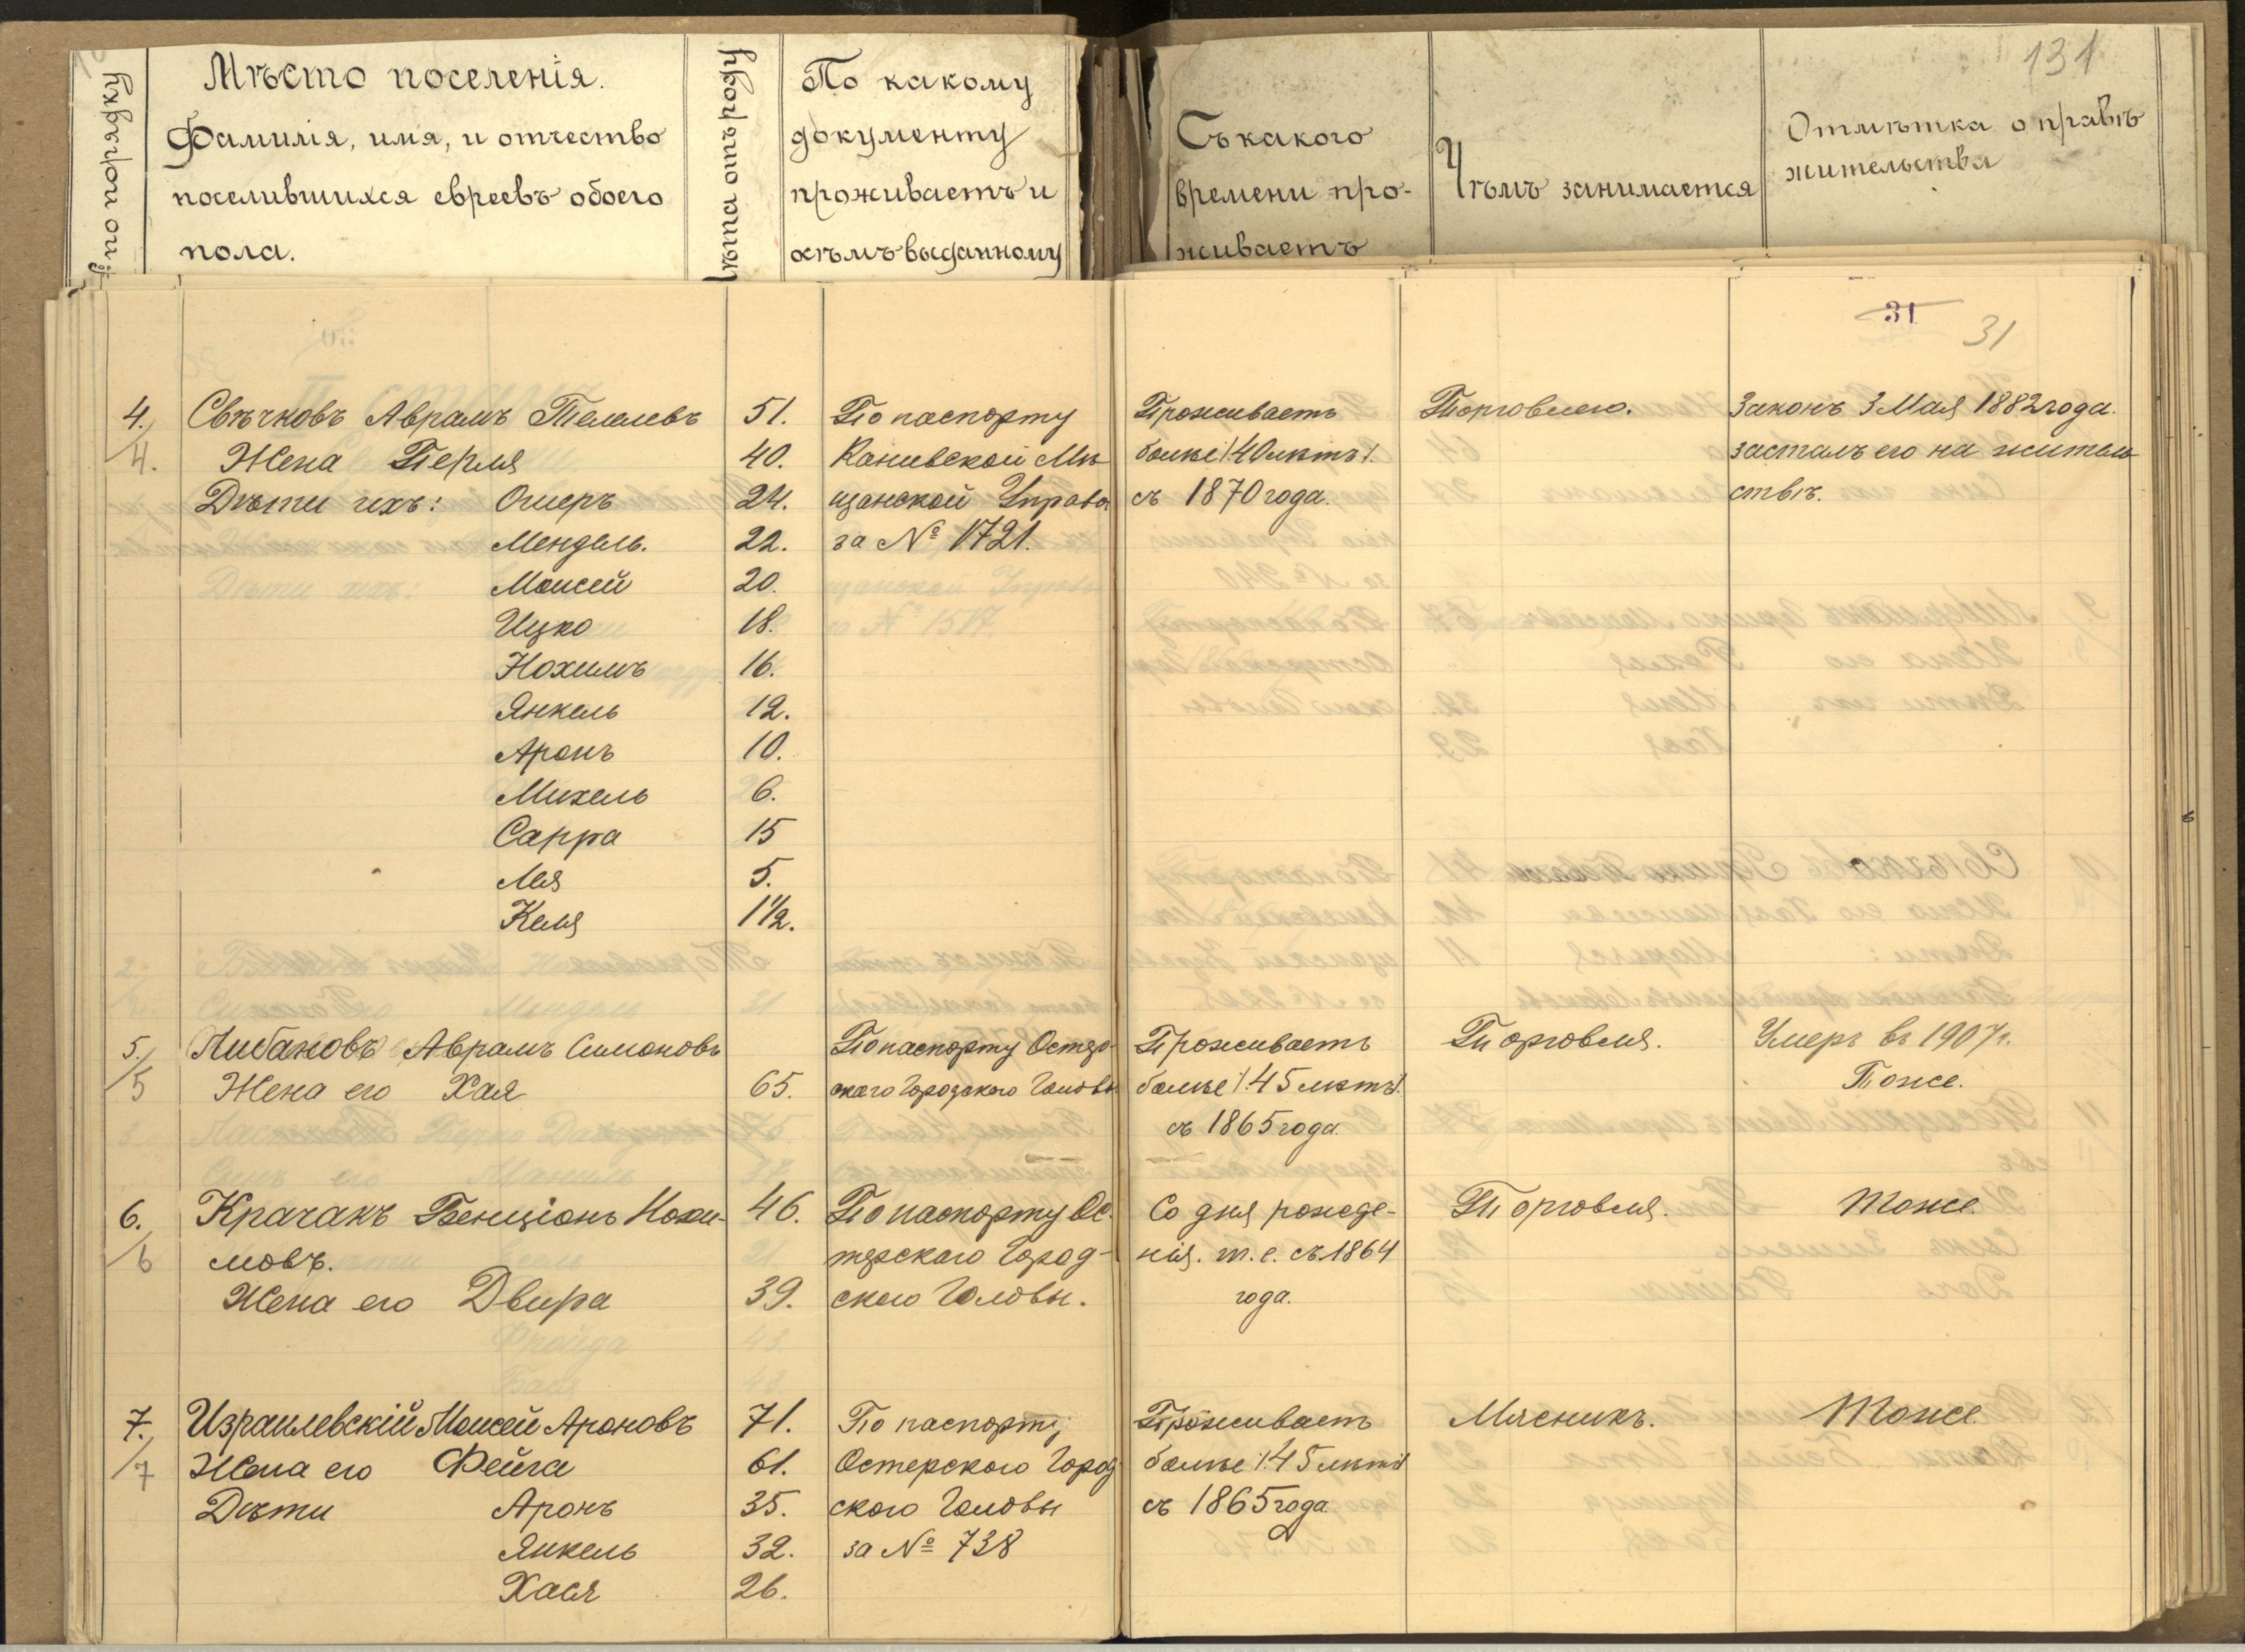 131
№ по порядку
Мѣсто поселенія.
Фамилія, имя, и отчество
поселившихся евреевъ обоего
пола.
Лѣта отъ роду
По какому
документу
проживаетъ и
кѣмъ выданному
Съ какого
времени про-
живаетъ
Чѣмъ занимается
Отмѣтка о правѣ
жительства
31
31
4. Свѣчковъ Аврамъ 51. По паспорту Проживаетъ Торговлею. Законъ 3 Мая 1882 года
4. Жена Перля 40. Каневской Мѣ- болѣе /:40 лѣтъ:/ засталъ его на житель-
Дѣти ихъ: Ошеръ 24. щанской Управы съ 1870 года. ствѣ.
Мендель. 22. за № 1721.
Моисей 20.
Ицко 18.
Нохимъ 16.
Янкель 12.
Аронъ 10.
Михель 6.
Сарра 15
Лея 5.
Келя 1½.
5. Либановъ Аврамъ Симоновъ По паспорту Остер- Проживаетъ Торговля. Умеръ въ 1907 г.
5 Жена его Хая 65. скаго Городскаго Головы болѣе /:45 лѣтъ:/ Тоже.
съ 1865 года.
6. Крачакъ Бенціонъ Нохи- 46. По паспорту Ос- Со дня рожде- Торговля. Тоже.
6 мовъ. терскаго Город- нія. т. е. съ 1864
Жена его Двира 39. скаго Головы. года.
7. Израилевскій Моисей Ароновъ 71. По паспорту Проживаетъ Мясникъ. Тоже.
7 Жена его Фейга 61. Остерскаго Город- болѣе /:45 лѣтъ:/
Дѣти Аронъ 35. скаго Головы съ 1865 года
Янкель 32. за № 738
Хася 26.